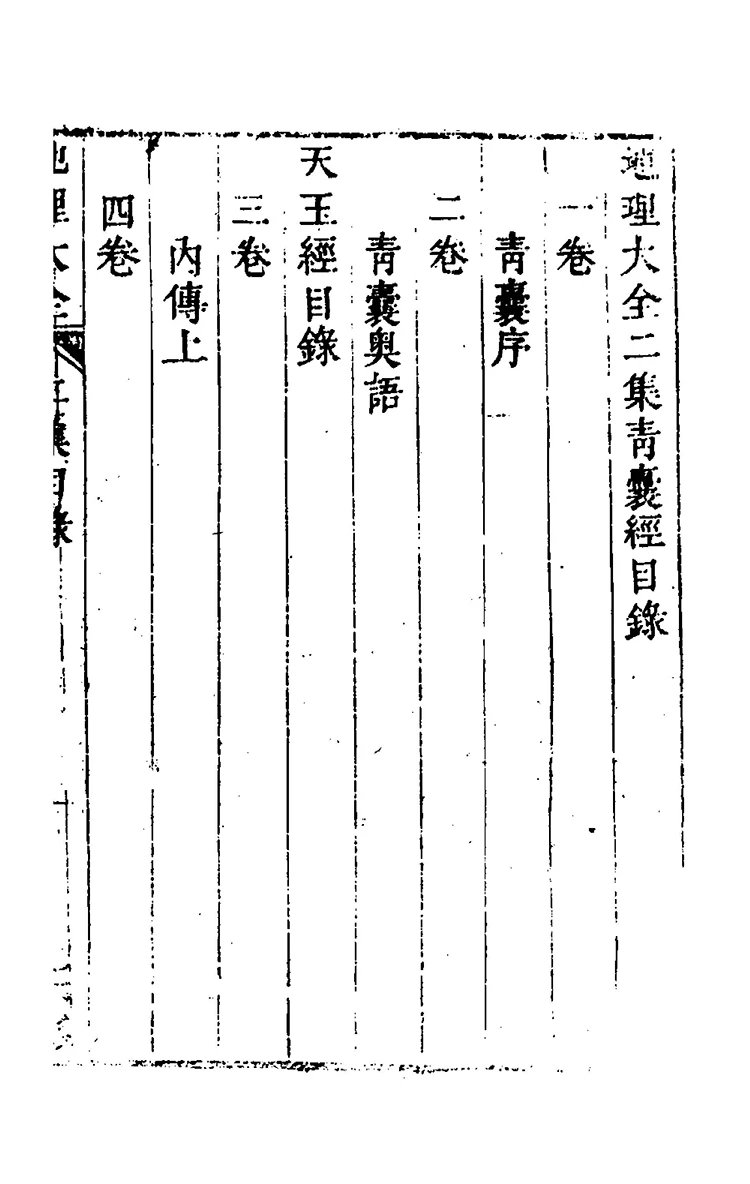 地理大全二集青囊經目錄
一卷
青囊序
二卷
青囊奥語
天玉經目錄
三卷
內傳上
四卷
地理大全
二集目錄